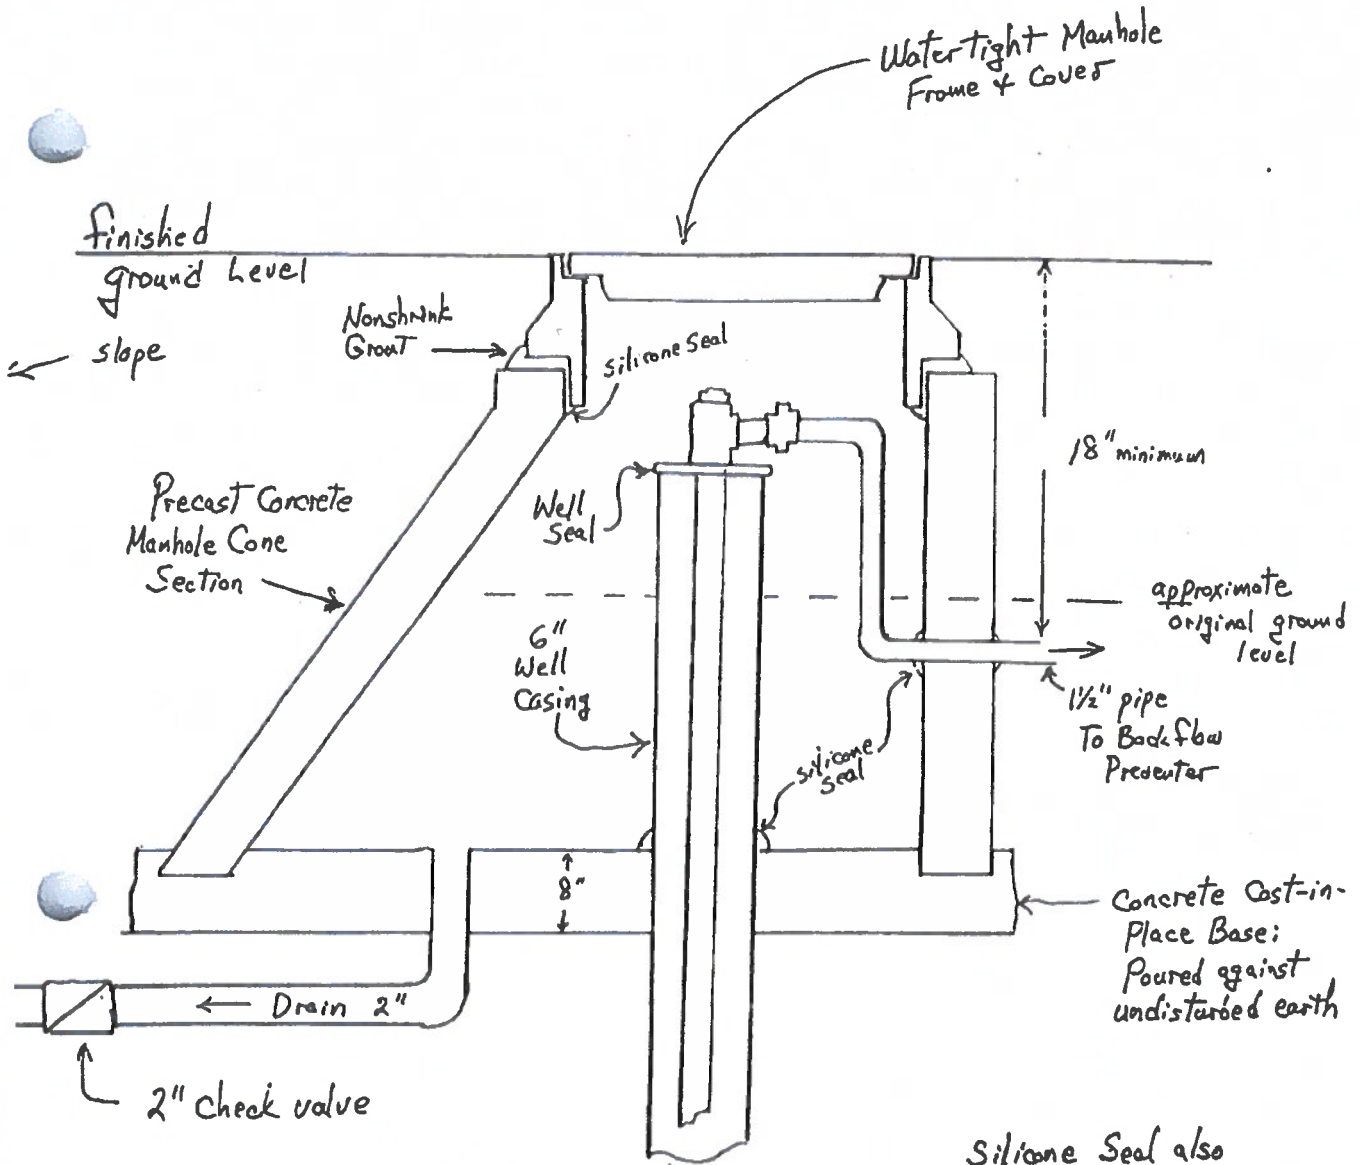 Watertight Manhole
Frame & Cover
finished
ground Level
slope
Nonshrink
Grout
silicone seal
18" minimum
Precast Concrete
Manhole Cone
Section
Well
Seal
approximate
original ground
level
6"
Well
Casing
1½" pipe
To Backflow
Preventer
silicone
seal
8"
Concrete Cast-in-
Place Base;
Poured against
undisturbed earth
Drain 2"
2" Check valve
Silicone Seal also